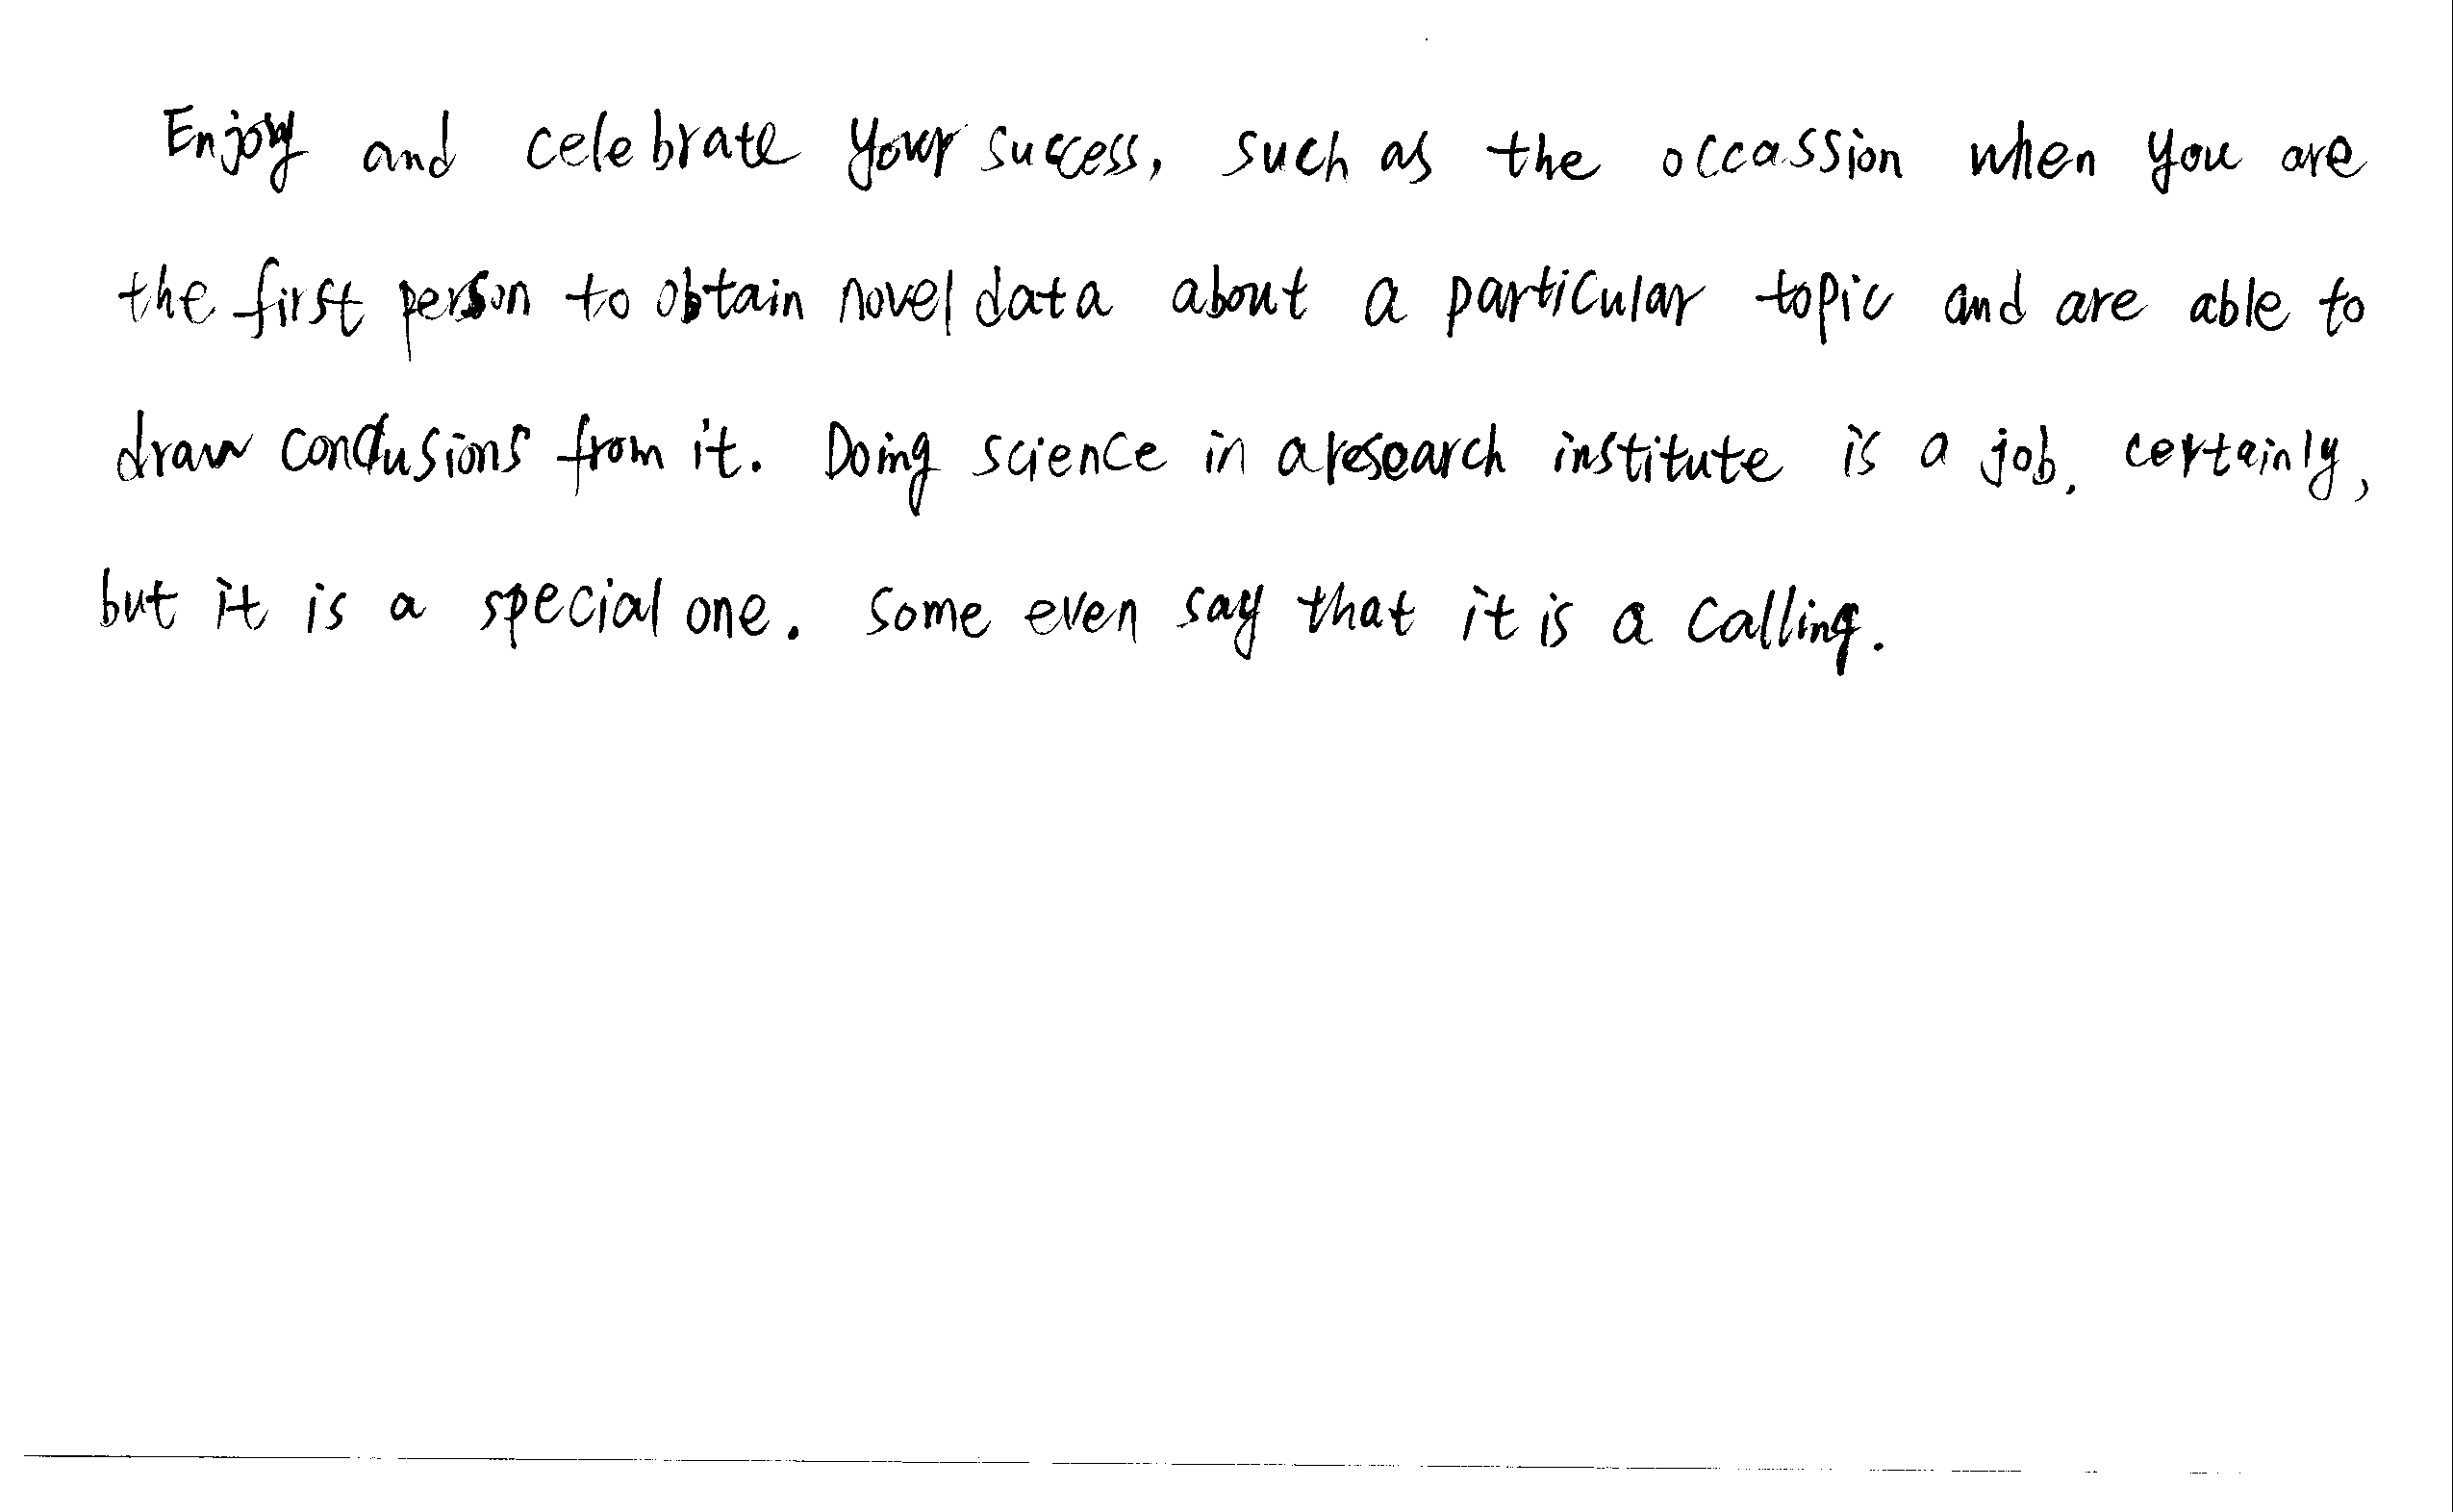 Enjoy and celebrate your success, such as the occassion when you are
the first person to obtain novel data about a particular topic and are able to
draw conclusions from it. Doing science in a research institute is a job, certainly,
but it is a special one. Some even say that it is a calling.